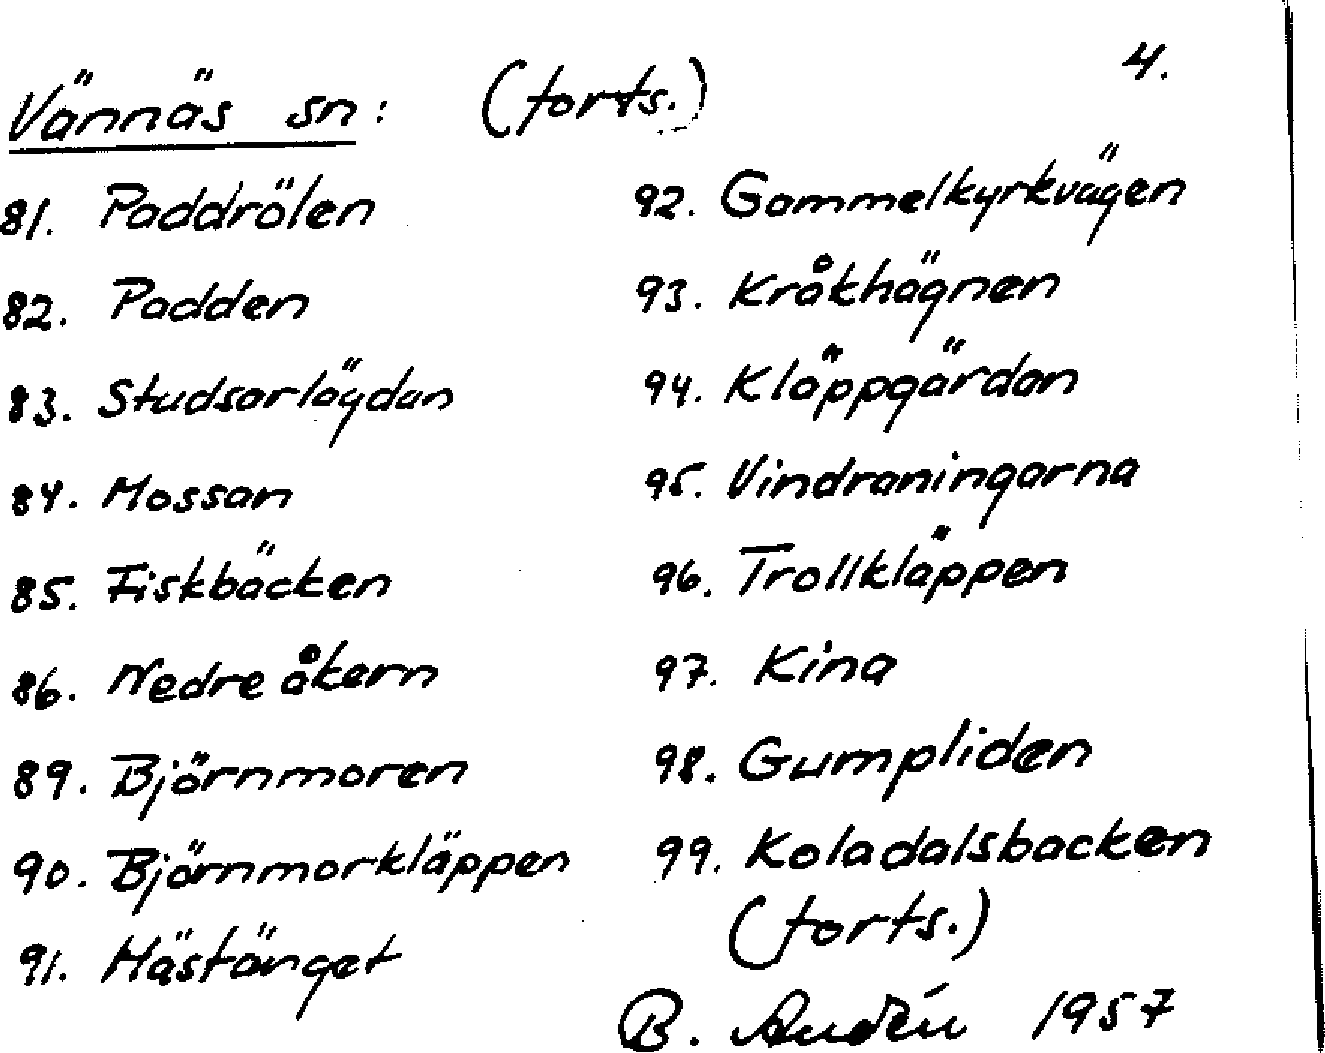 4.
Vännäs sn: (forts.)
81. Paddrölen
82. Padden
83. Studsarlägdan
84. Mossan
85. Fiskbäcken
86. Nedre åkern
89. Björnmoren
90. Björnmorkläppen
91. Hästänget
92. Gammelkyrkvägen
93. Kråkhägnen
94. Kläppgärdan
95. Vindraningarna
96. Trollkläppen
97. Kina
98. Gumpliden
99. Koladalsbacken
(forts.)
B. Audén 1957